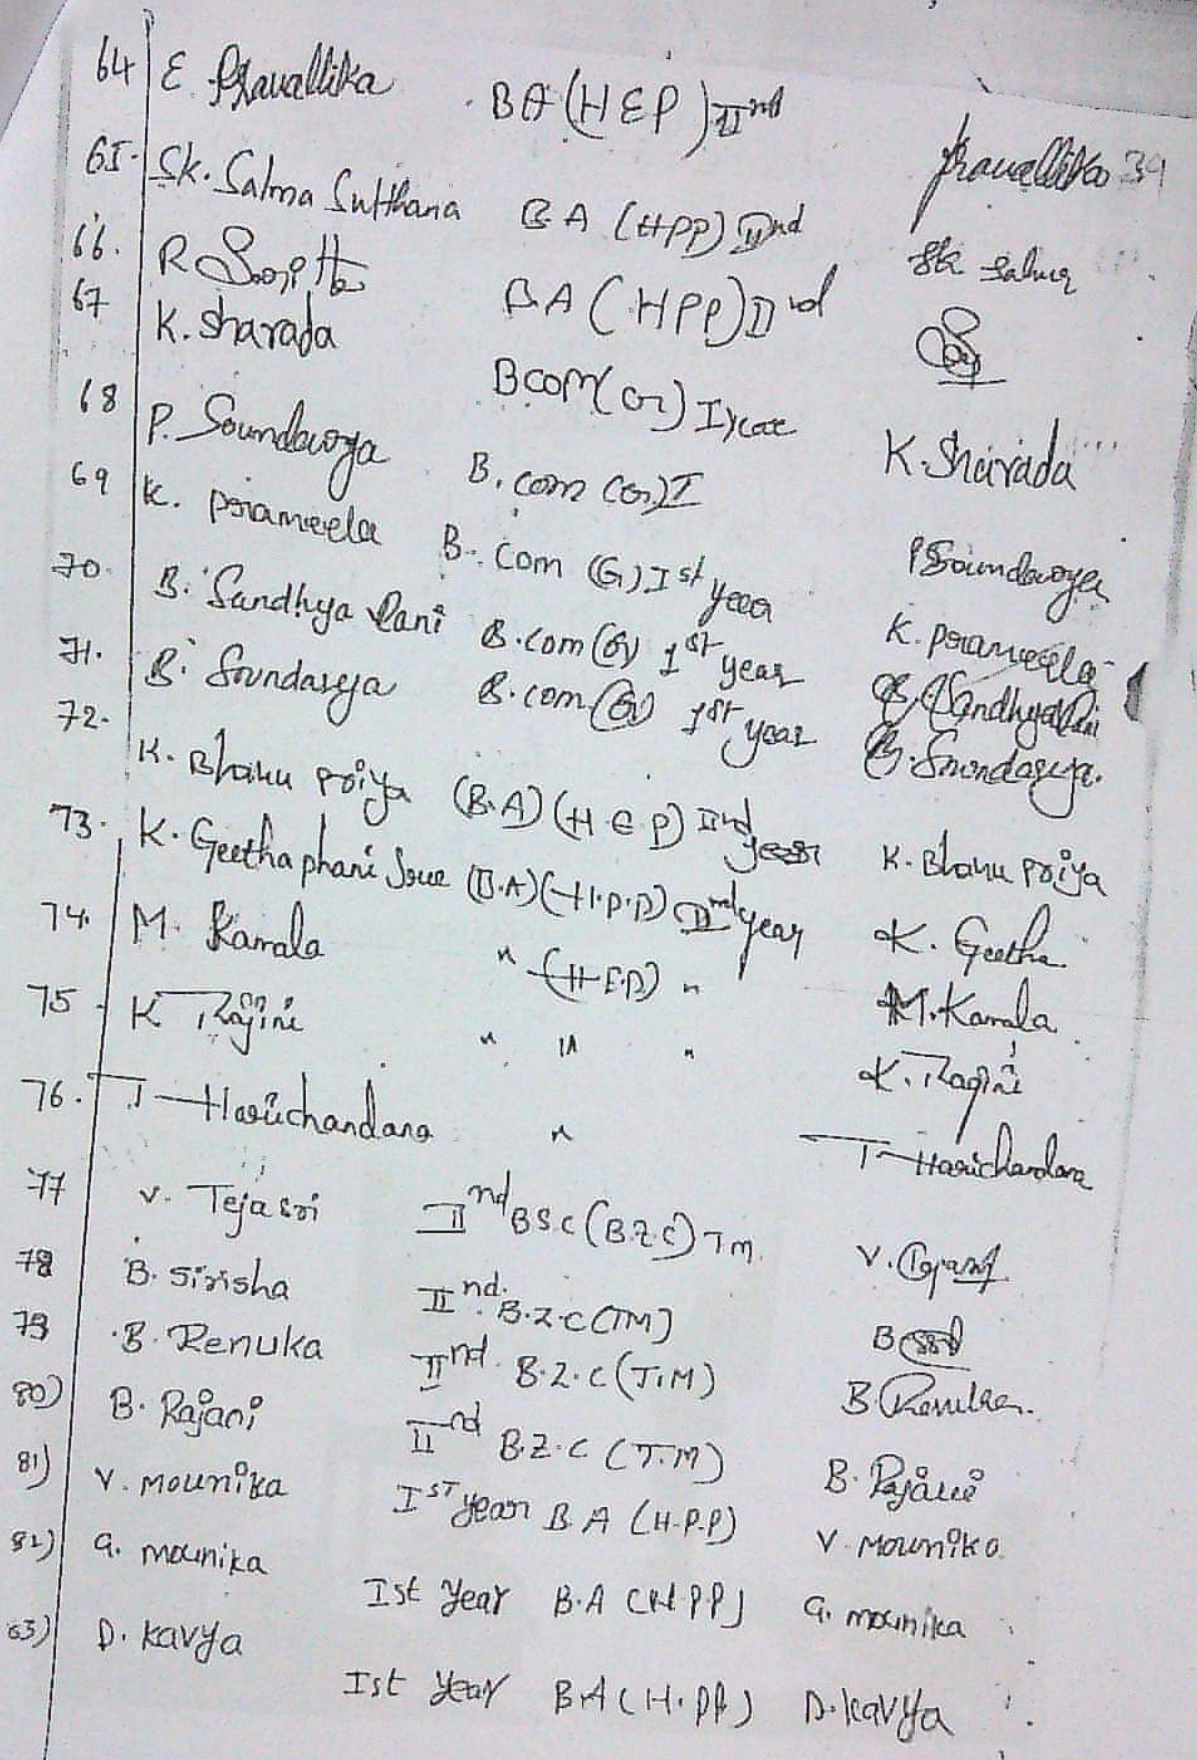 64 E Pravallika BA (HEP) IInd Pravallika 39
65. Sk. Salma Sulthana BA (HPP) IInd Sk Salma
66. R BA (HPP) IInd
67 K. Sharada BCOM(G) I year K. Sharada
68 P. Soundarya B. com (G) I P Soundarya
69 K. Prameela B. Com (G) Ist year K. Prameela
70. B. Sandhya Rani B.com (G) 1st year B. Sandhya Rani
71. B. Soundarya B.com (G) 1st year B. Soundarya.
72. K. Bhanu Priya (B.A) (H E P) IInd year K. Bhanu Priya
73. K. Geetha phani (B.A) (H.P.P) IInd year K. Geetha.
74. M. Kamala " (H.E.P) " M. Kamala
75 K Rajini " " " K. Ragini
76. T Harichandana " T Harichandana
77 V. Tejasri IInd BSC (B.Z.C) T M. V.
78 B. Sirisha IInd. B.Z.C (TM) B
79 B. Renuka IInd. B.Z.C (T.M) B Renuka.
80) B. Rajani IInd B.Z.C (T.M) B. Rajani
81) V. Mounika IST year B A (H.P.P) V Mounika
82) G. mounika Ist year B.A (H P P) G. mounika
83) D. Kavya Ist year B.A (H.PP) D. Kavya